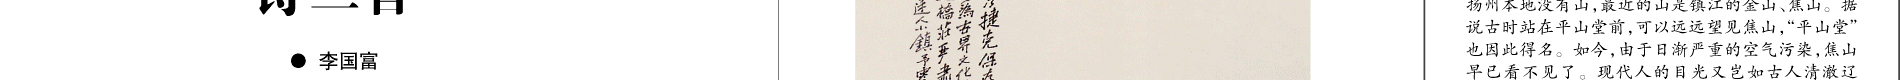 诗二首
● 李国富
捷克保存
为古界文化
桥庄严肃
迷人小镇
扬州本地没有山，最近的山是镇江的金山、焦山。据
说古时站在平山堂前，可以远远望见焦山，“平山堂”
也因此得名。如今，由于日渐严重的空气污染，焦山
早已看不见了。现代人的目光又岂如古人清澈辽